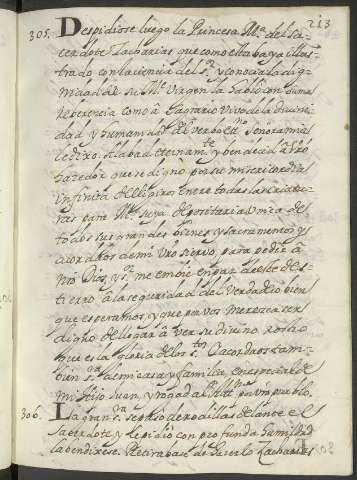 213
305. Despidiose luego la Princesa M.ª del Sa-
cerdote Zacharias que como estaba ya illus-
trado con la ciencia del S.r y conocia la dig-
nidad de su M.e Virgen la hablò con suma
reberencia como à Sagrario vivo de la Divini-
dad y humanidad del Verbo Et.no Señora mia
le dixo alabad eternam.te y bendecid à vr̃o
hazedor que se dignò por su misericordia
infinita de eligiros entre todas las criatu-
ras para M.e suya depositaria unica de
todos sus grandes bienes y sacramentos y
acordaos de mi vr̃o siervo, para pedir à
nr̃o Dios, y S.r me embie en paz de este des-
tierro à la seguridad del verdadero bien
que esperamos, y que por vos merezca ser
digno de llegar à ver su divino rostro
que es la gloria de los S.tos Acordaos tam-
bien S.ra de mi casa y familia, en especial de
mi Hijo Juan, y rogad al Alt.mo por vr̃o pueblo.
306. La gran S.ra se puso de rodillas delante el
Sacerdote y le pidiò con profunda humildad
la bendixese. Retirabase de hacerlo Zacharias